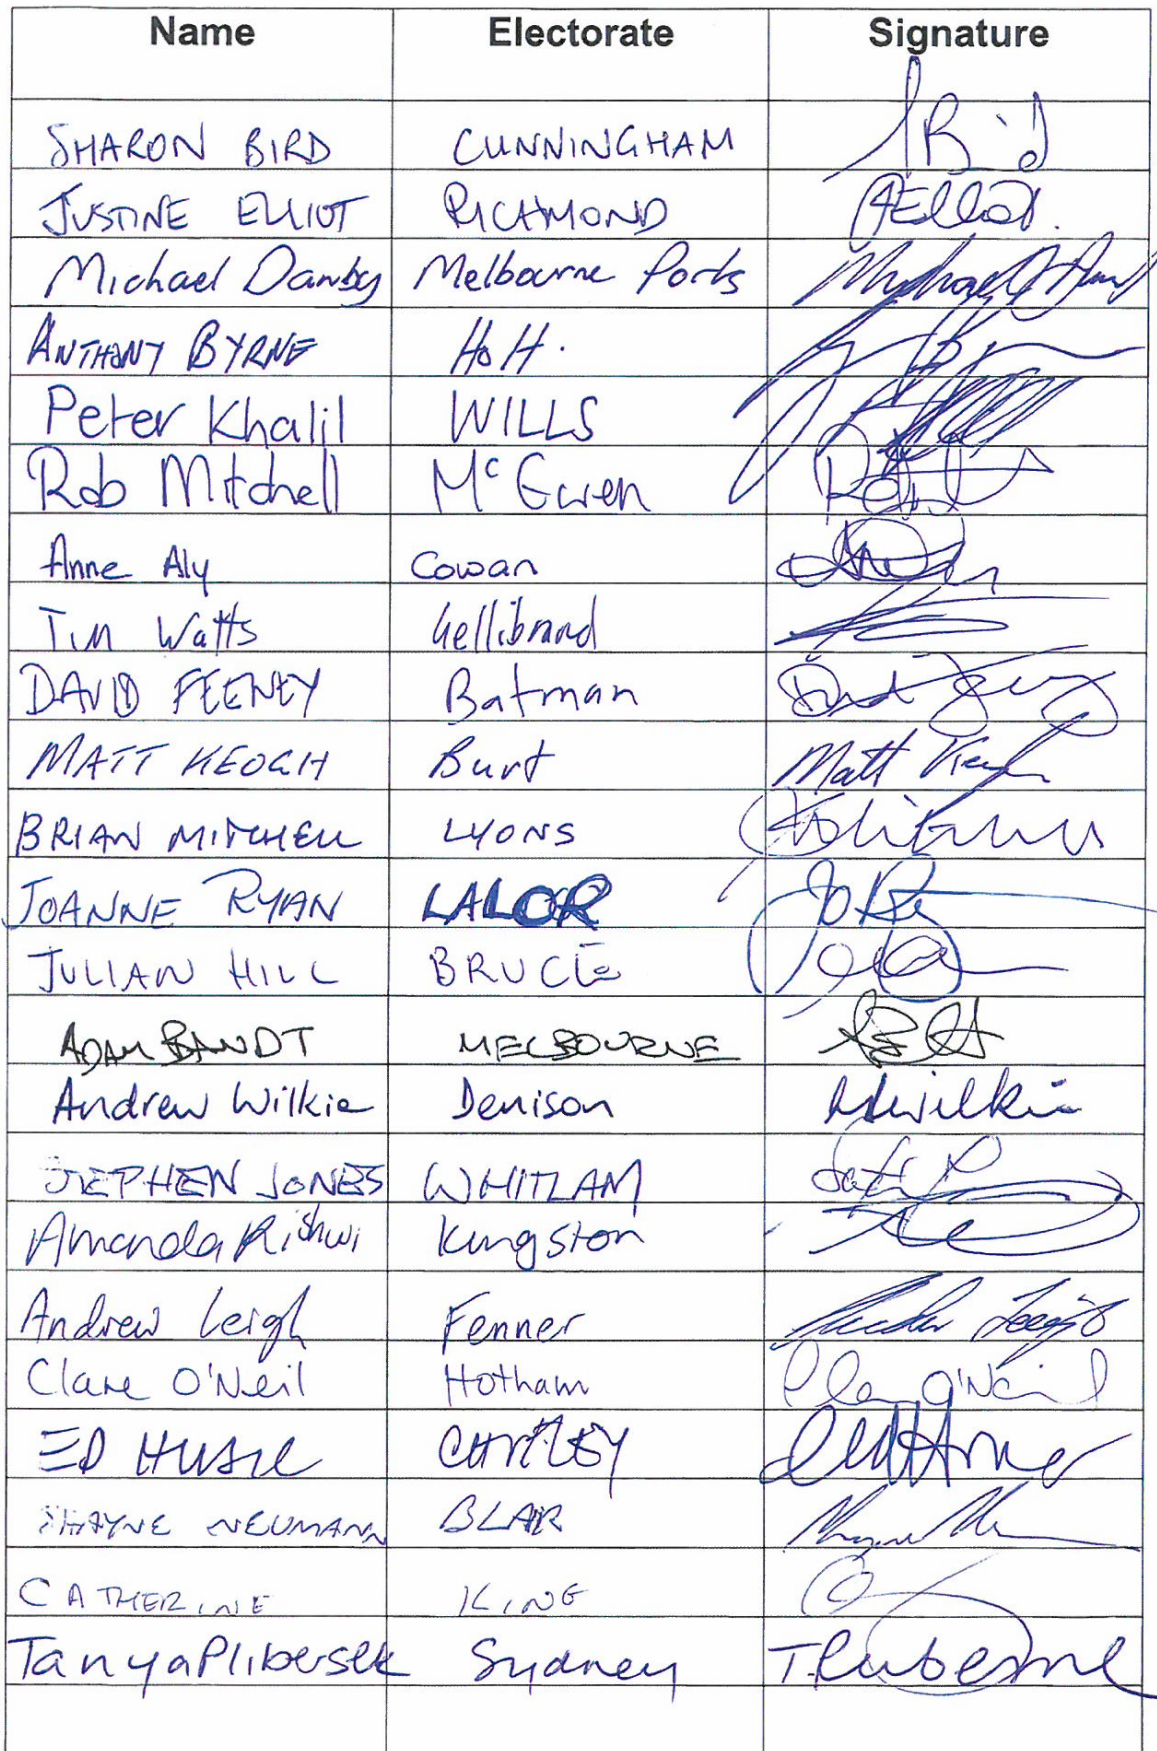 Name Electorate Signature
SHARON BIRD CUNNINGHAM
JUSTINE ELLIOT RICHMOND
Michael Danby Melbourne Ports
ANTHONY BYRNE Holt.
Peter Khalil WILLS
Rob Mitchell McEwen
Anne Aly Cowan
Tim Watts Gellibrand
DAVID FEENEY Batman
MATT KEOGH Burt Matt Keogh
BRIAN MITCHELL LYONS
JOANNE RYAN LALOR
JULIAN HILL BRUCE
ADAM BANDT MELBOURNE
Andrew Wilkie Denison AWilkie
STEPHEN JONES WHITLAM
Amanda Rishwi Kingston
Andrew Leigh Fenner
Clare O'Neil Hotham Clare O'Neil
ED HUSIC CHIFLEY
SHAYNE NEUMANN BLAIR
CATHERINE KING
Tanya Plibersek Sydney